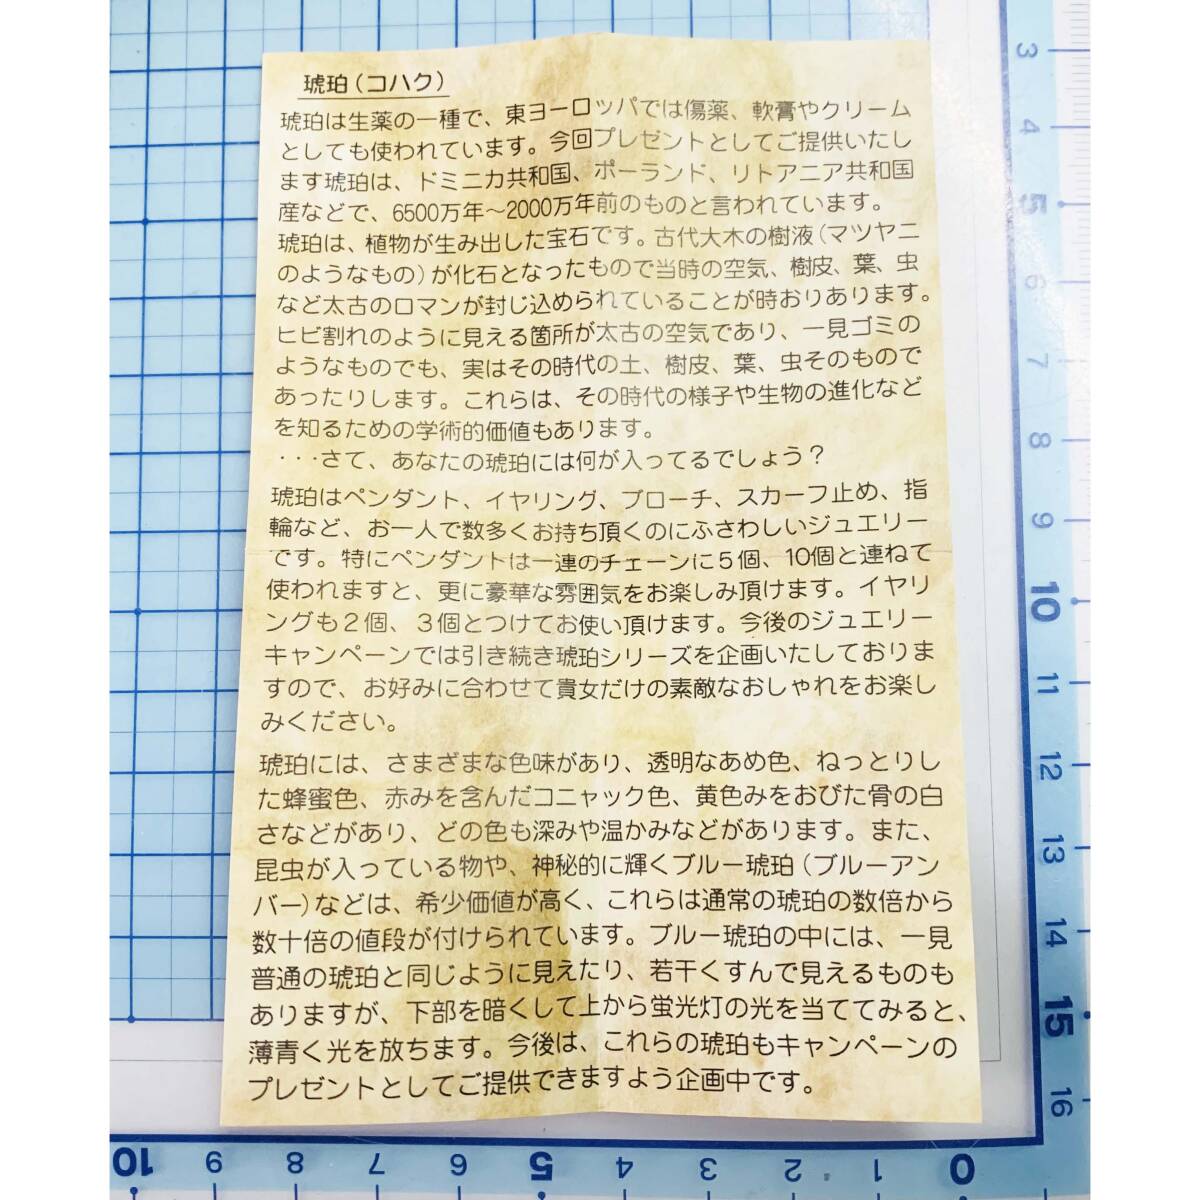 琥珀(コハク)
琥珀は生薬の一種で、東ヨーロッパでは傷薬、軟膏やクリーム
としても使われています。今回プレゼントとしてご提供いたし
ます琥珀は、ドミニカ共和国、ポーランド、リトアニア共和国
産などで、6500万年~2000万年前のものと言われています。
琥珀は、植物が生み出した宝石です。古代大木の樹液(マツヤニ
のようなもの)が化石となったもので当時の空気、樹皮、葉、虫
など太古のロマンが封じ込められていることが時おりあります。
ヒビ割れのように見える箇所が太古の空気であり、一見ゴミの
ようなものでも、実はその時代の土、樹皮、葉、虫そのもので
あったりします。これらは、その時代の様子や生物の進化など
を知るための学術的価値もあります。
・・・さて、あなたの琥珀には何が入ってるでしょう?
琥珀はペンダント、イヤリング、ブローチ、スカーフ止め、指
輪など、お一人で数多くお持ち頂くのにふさわしいジュエリー
です。特にペンダントは一連のチェーンに5個、10個と連ねて
使われますと、更に豪華な雰囲気をお楽しみ頂けます。イヤリ
ングも2個、3個とつけてお使い頂けます。今後のジュエリー
キャンペーンでは引き続き琥珀シリーズを企画いたしておりま
すので、お好みに合わせて貴女だけの素敵なおしゃれをお楽し
みください。
琥珀には、さまざまな色味があり、透明なあめ色、ねっとりし
た蜂蜜色、赤みを含んだコニャック色、黄色みをおびた骨の白
さなどがあり、どの色も深みや温かみなどがあります。また、
昆虫が入っている物や、神秘的に輝くブルー琥珀(ブルーアン
バー)などは、希少価値が高く、これらは通常の琥珀の数倍から
数十倍の値段が付けられています。ブルー琥珀の中には、一見
普通の琥珀と同じように見えたり、若干くすんで見えるものも
ありますが、下部を暗くして上から蛍光灯の光を当ててみると、
薄青く光を放ちます。今後は、これらの琥珀もキャンペーンの
プレゼントとしてご提供できますよう企画中です。
3
4
5
6
7
8
9
10
11
12
13
14
15
16
10
9
8
7
6
5
4
3
2
1
0